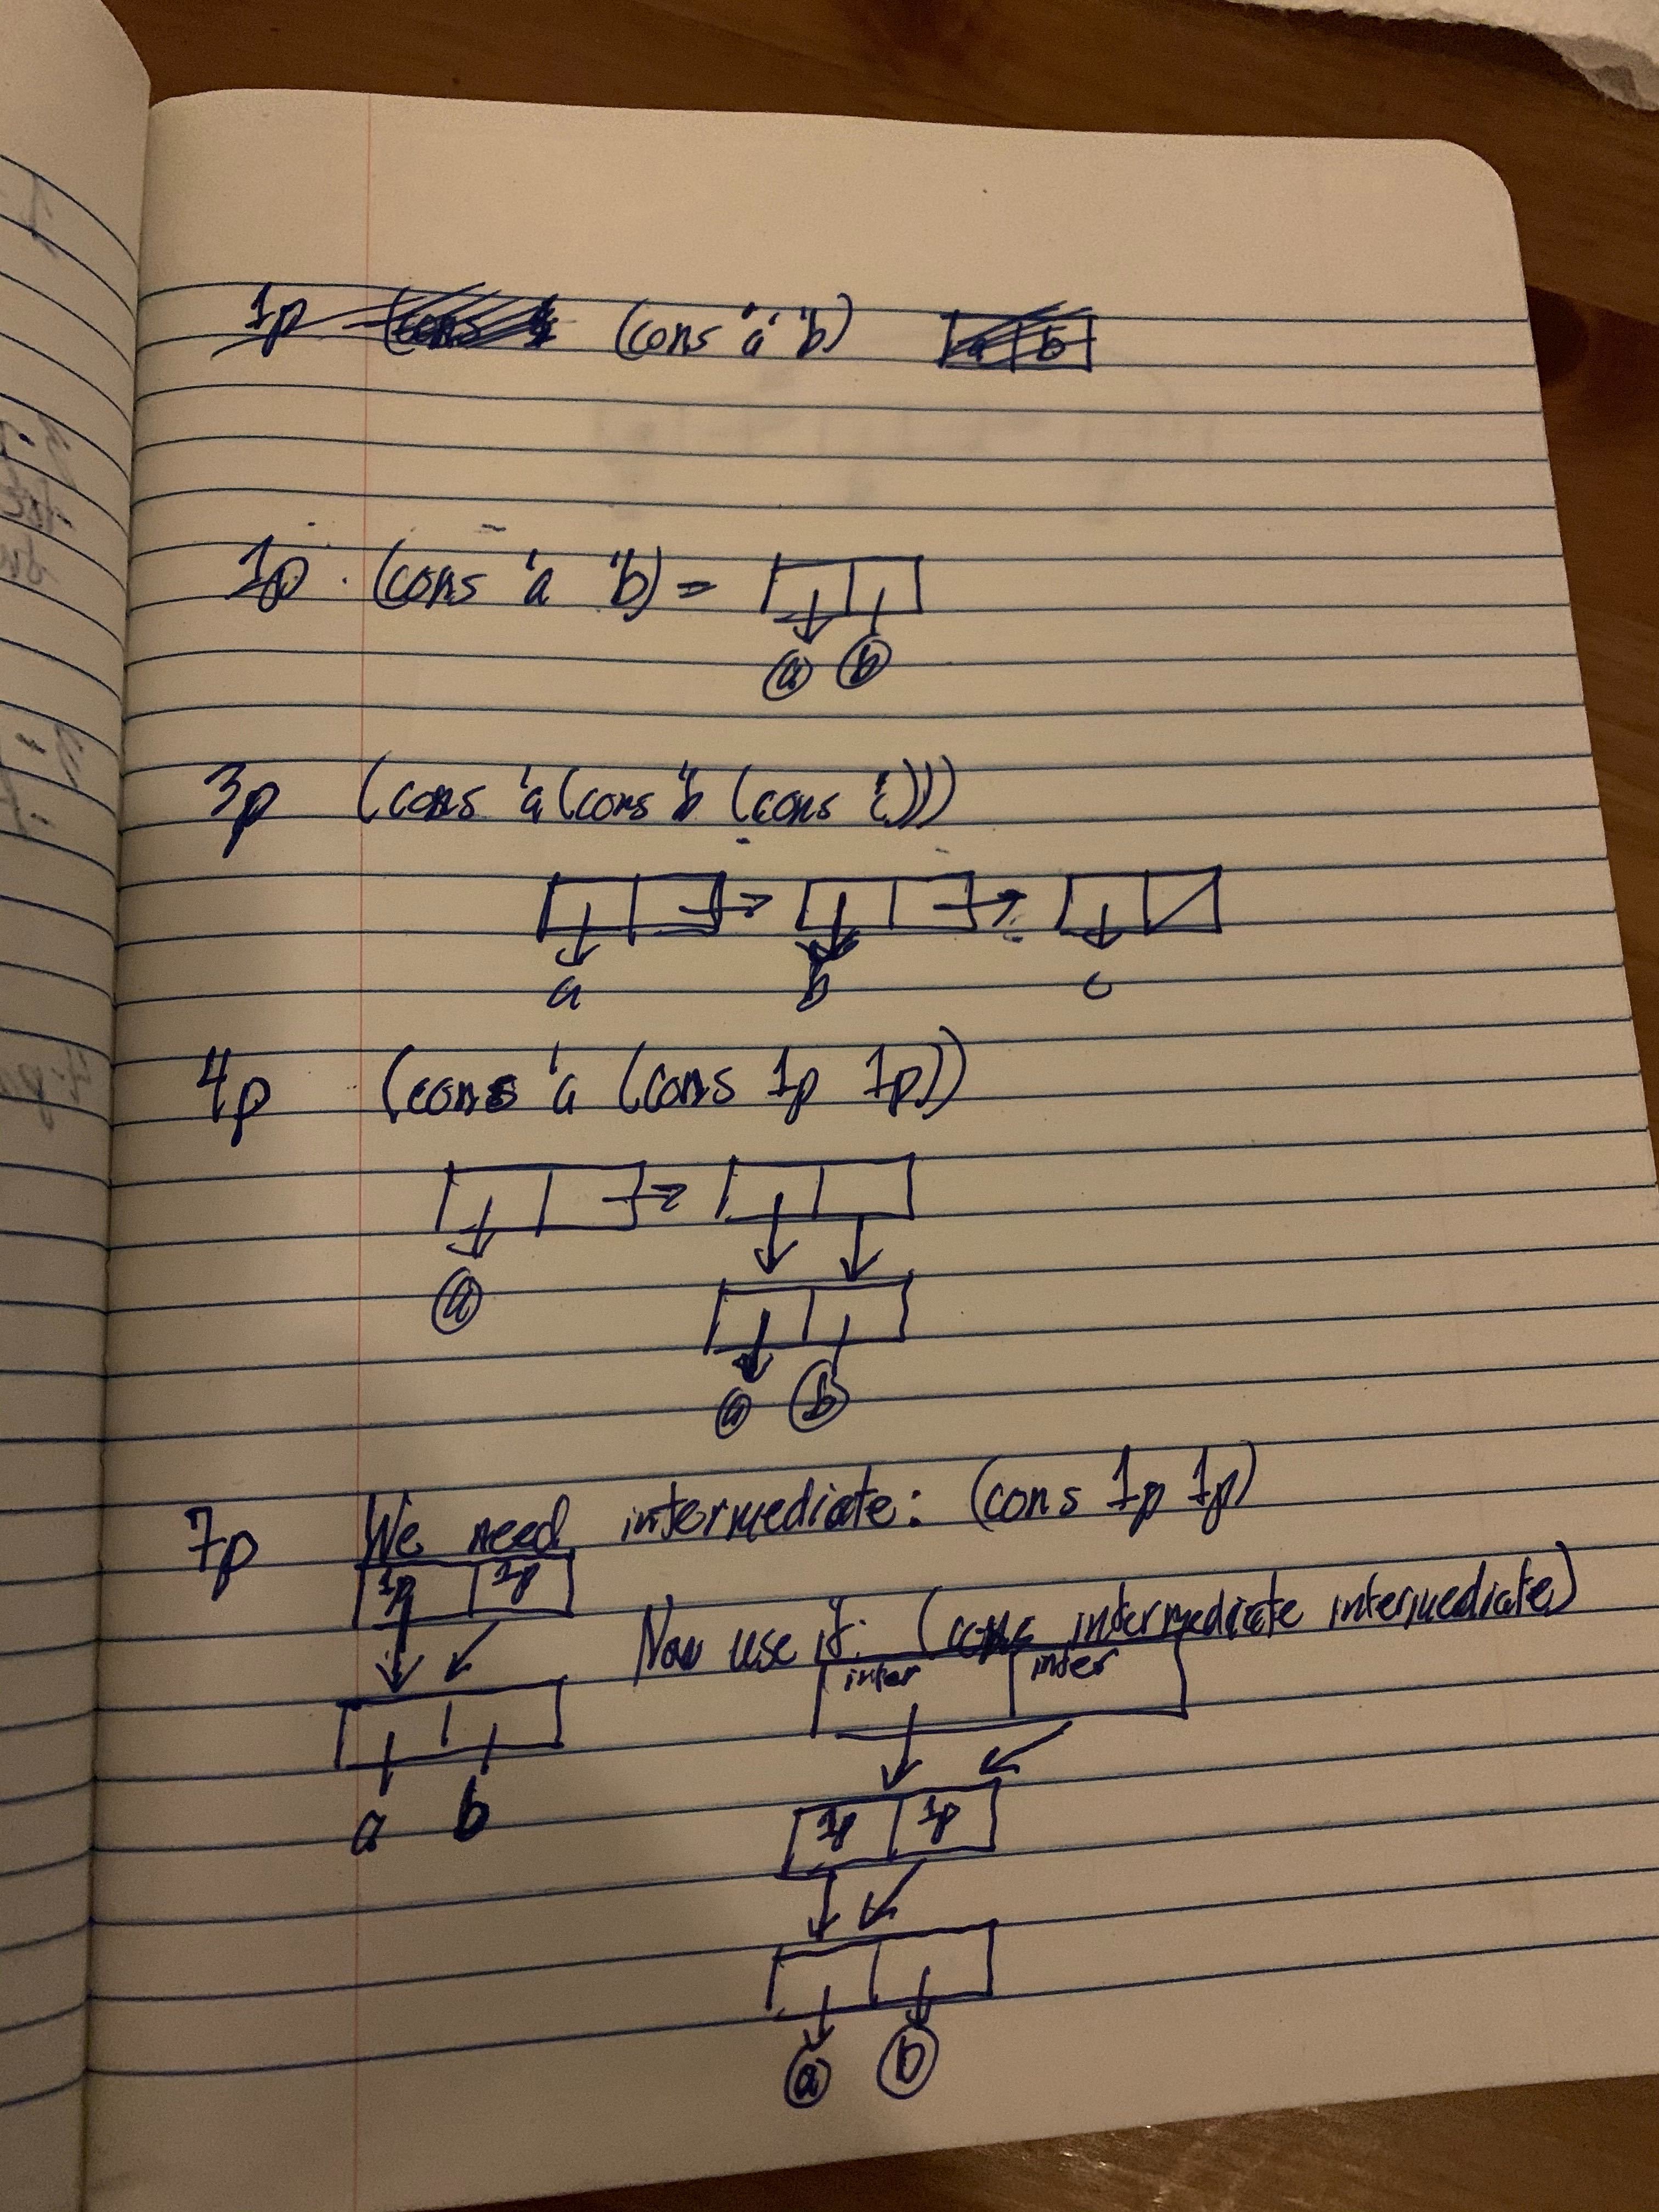 1p (cons (cons 'a 'b) a b
1p. (cons 'a 'b) =
a b
3p (cons 'a (cons 'b (cons 'c)))
a b c
4p (cons 'a (cons 1p 1p))
a
a b
7p We need intermediate: (cons 1p 1p)
1p 1p
Now use it: (cons intermediate intermediate)
inter inter
a b
1p 1p
a b